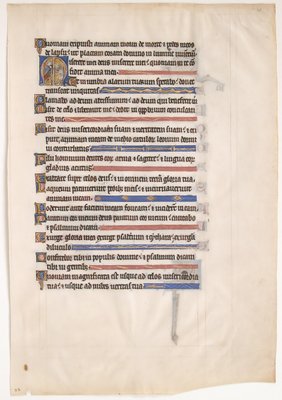 Quoniam eripuisti animam meam de morte & pedes meos
de lapsu: ut placeam coram domino in lumine viventium
Miserere mei deus miserere mei: quoniam in te con
fidit anima mea.
Et in umbra alarum tuarum sperabo: donec
transeat iniquitas.
Clamabo ad deum altissimum: & ad deum qui benefecit m
Misit de celo & liberavit me: dedit in opprobrium conculcan
tes me.
Misit deus misericordiam suam & veritatem suam: & eri
puit animam meam de medio catulorum leonum dormi
vi conturbatus.
Filii hominum dentes eorum arma & sagitte: & lingua eorum
gladius acutus.
Exaltare super celos deus: & in omnem terram gloria tua.
Laqueum paraverunt pedibus meis: & incurvaverunt
animam meam.
Foderunt ante faciem meam foveam: & inciderunt in eam
Paratum cor meum deus paratum cor meum: cantabo
& psalmum dicam.
Exurge gloria mea exurge psalterium & cythara: exurgam
diluculo.
Confitebor tibi in populis domine: & psalmum dicam
tibi in gentibus.
Quoniam magnificata est usque ad celos misericordia
tua: & usque ad nubes veritas tua.